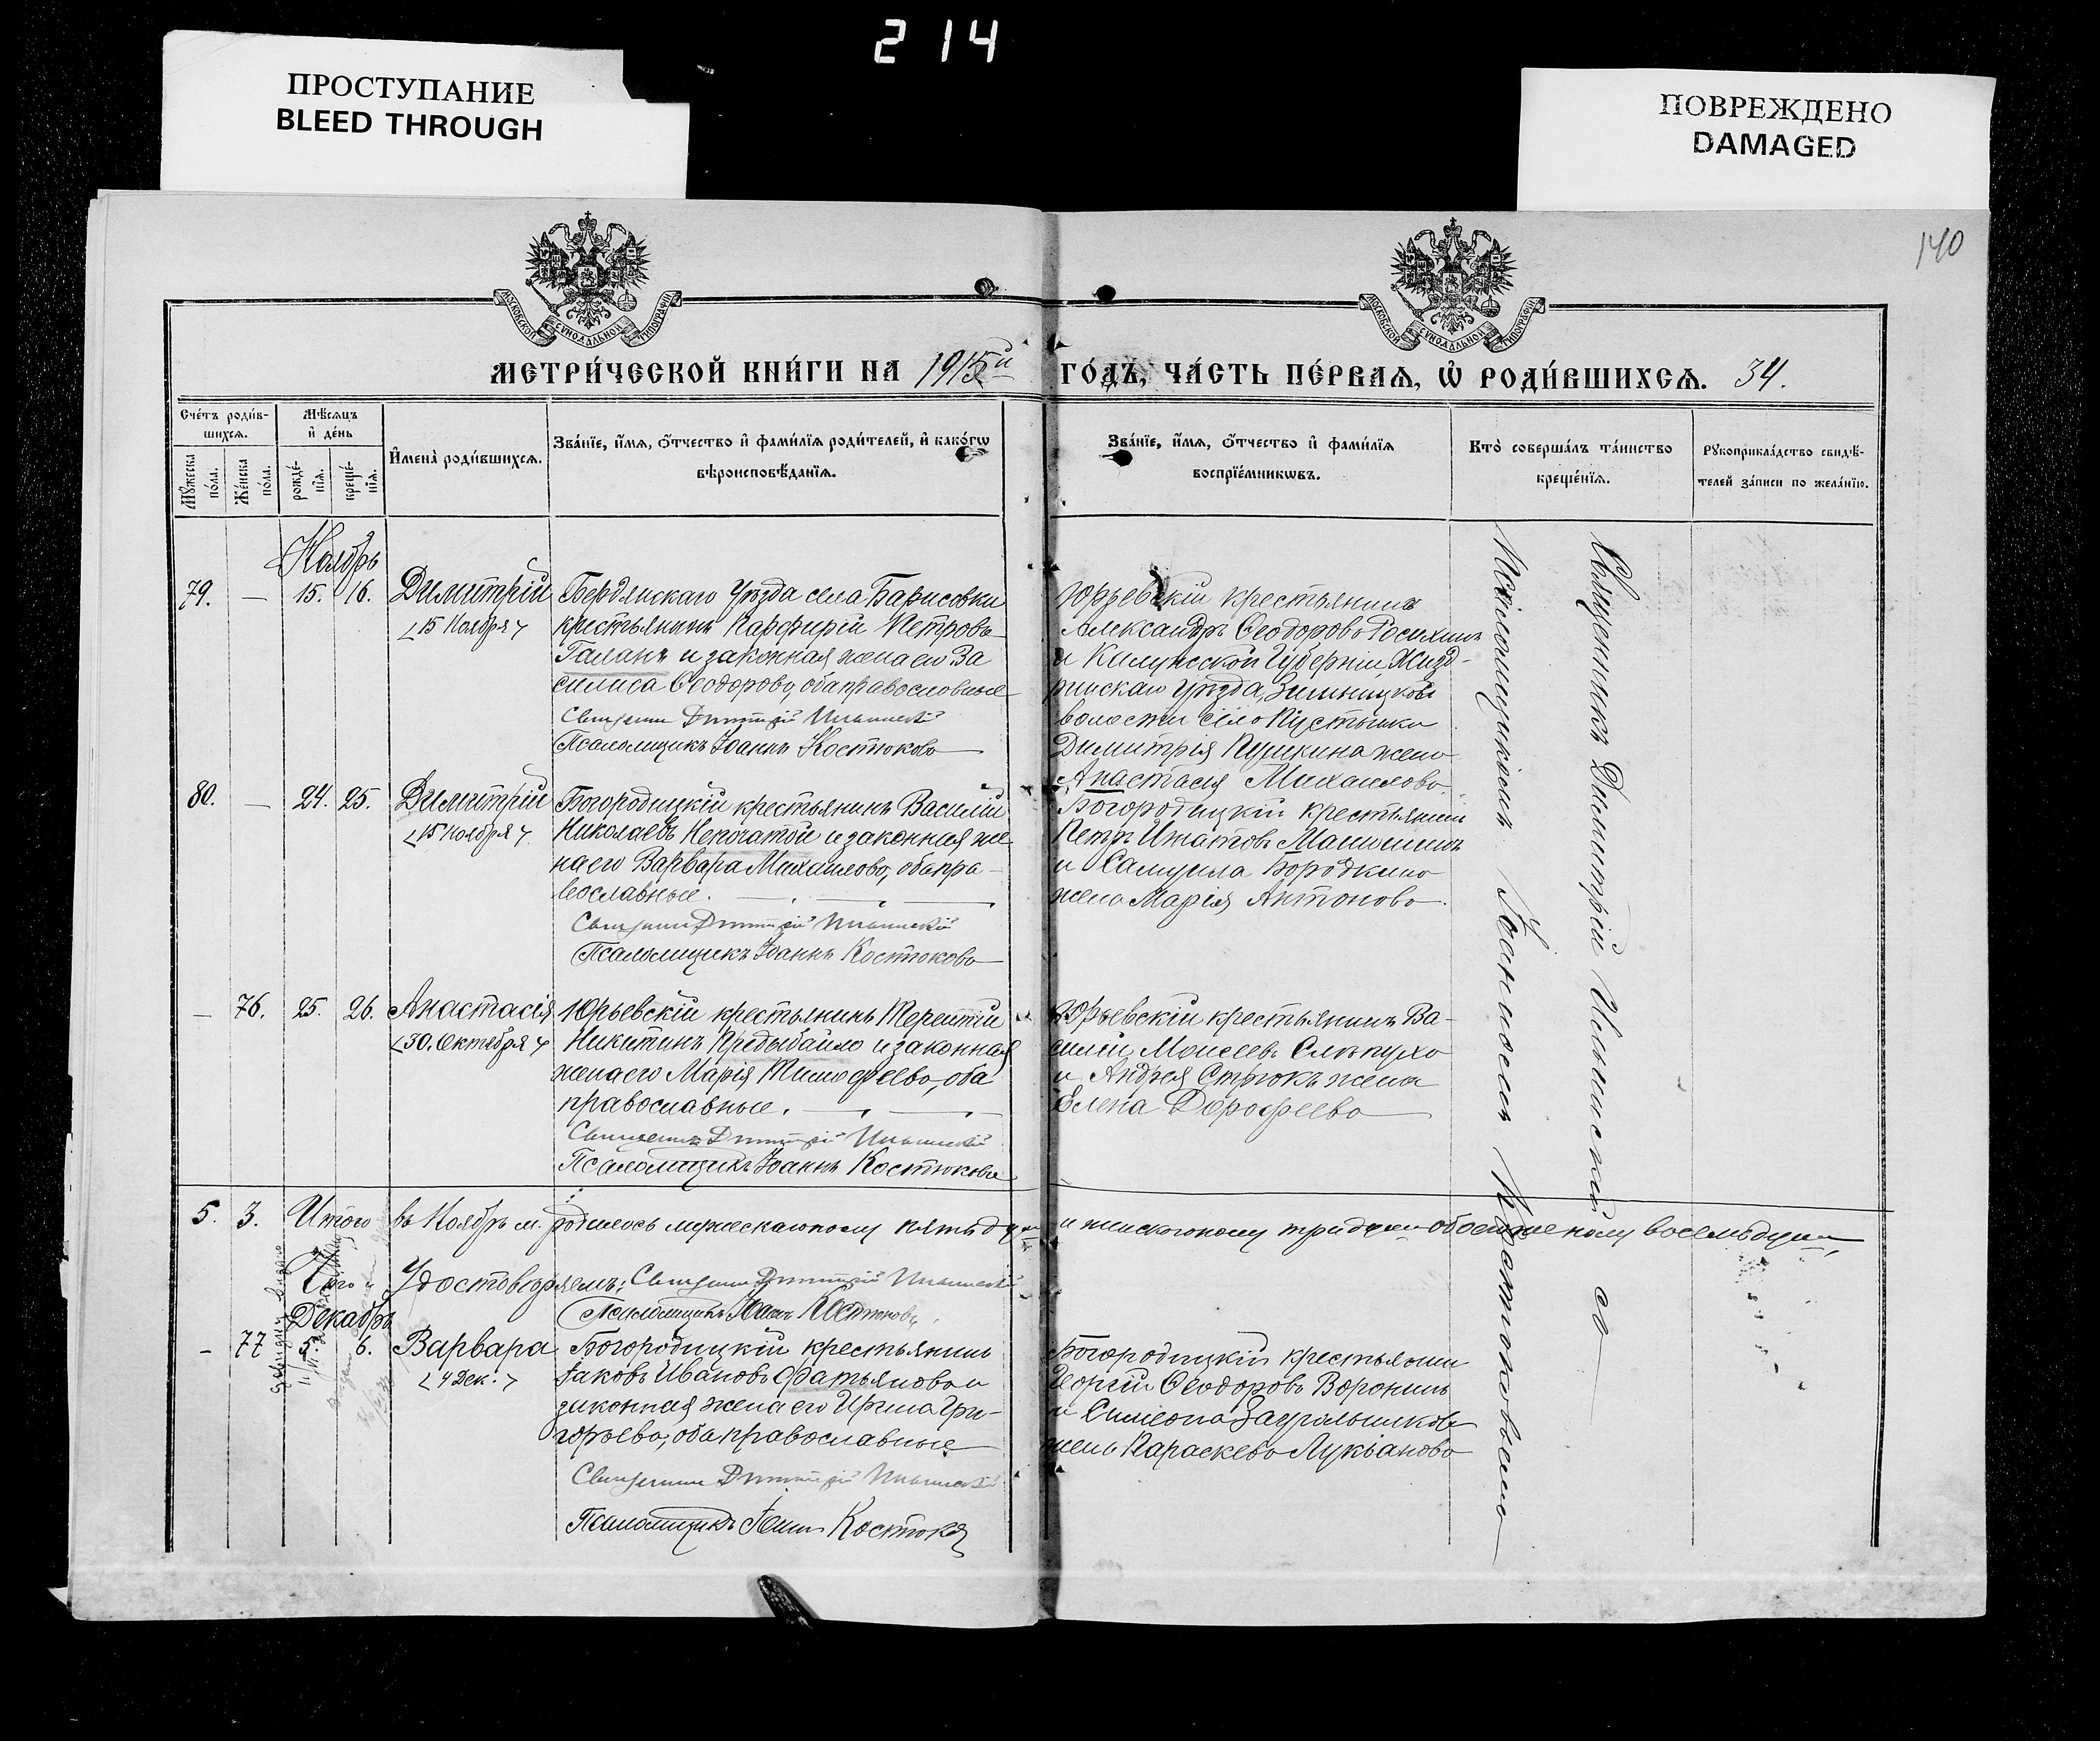 214
ПРОСТУПАНИЕ
BLEED THROUGH
ПОВРЕЖДЕНО
DAMAGED
140
МОСКОВСКОЙ СѴНОДАЛЬНОЙ ТИПОГРАФІИ
МОСКОВСКОЙ СѴНОДАЛЬНОЙ ТИПОГРАФІИ
МЕТРИ́ЧЕСКОЙ КНИ́ГИ НА 1915й
ГО́ДЪ, ЧА́СТЬ ПЕ́РВАѦ, Ѡ҆ РОДИ́ВШИХСѦ. 34.
Сче́тъ роди́вшихсѧ.
Мꙋ́жеска по́ла.
Же́нска по́ла.
Мѣ́сѧцъ и҆ де́нь
рожде́нїѧ.
креще́нїѧ.
И҆мена̀ роди́вшихсѧ.
Зва́нїе, и҆́мѧ, ѻ҆́тчество и҆ фами́лїѧ роди́телей, и҆ како́гѡ
вѣроисповѣ́данїѧ.
Зва́нїе, и҆́мѧ, ѻ҆́тчество и҆ фами́лїѧ
воспрїе́мникѡвъ.
Кто̀ соверша́лъ та́инство
креще́нїѧ.
Рꙋкоприкла́дство свидѣ́-
телей за́писи по жела́нїю.
Ноябрь
79. — 15. 16. Димитрій
15 Ноября
Бердянскаго Уѣзда села Барисовки
крестьянинъ Парфирій Петровъ
Галанъ и законная жена его Ва
силиса Ѳеодорово, оба православные
Священникъ Димитрій Ильинскій
Псаломщикъ Іоаннъ Костюково
Юрьевскій крестьянинъ
Александръ Ѳеодоровъ
и Калужской Губерніи, Жизд-
ринскаго уѣзда,
волости село Пустынки
Димитрія Пушкина жено
Анастасія Михаилово.
80. — 24. 25. Димитрій
15 Ноября
Богородицкій крестьянинъ Василій
Николаевъ Непочатой и законная же
на его Варвара Михаилово, оба пра-
вославные.
Священникъ Димитрій Ильинскій
Псаломщикъ Іоаннъ Костюково
Богородицкій крестьянинъ
Петръ Игнатовъ
и Самуила Бородкино
жено Марія Антоново.
— 76. 25. 26. Анастасія
30. Октября
Юрьевскій крестьянинъ Терентій
Никитинъ Предыбайло и законная
жена его Марія Тимофеево, оба
православные.
Священникъ Димитрій Ильинскій
Псаломщикъ Іоаннъ Костюково
Юрьевскій крестьянинъ Ва-
силій Моисеевъ Слѣпухо
и Андрея Стрюкъ жена
Елена Дорофеево
5. 3. Итого въ Ноябрѣ м. родилось мужескаго полу пять душъ и женскаго полу три души обоего же полу восемь душъ,
Удостовѣряемъ: Священникъ Димитрій Ильинскій
Псаломщикъ Іоаннъ Костюковъ
Декабрь
- 77 5. 6. Варвара
4 Дек.
Богородицкій крестьянинъ
Іаковъ Ивановъ Фатьяново и
законная жена его Ирина Гри-
горьево, оба православные
Священникъ Димитрій Ильинскій
Псаломщикъ Іоаннъ Костюковъ
Богородицкій крестьянинъ
Георгій Ѳеодоровъ Воронинъ
и Симеона
жено Параскево Лукіаново
Священникъ Димитрій Ильинскій со
Псаломщикомъ Іоанномъ Костюковымъ